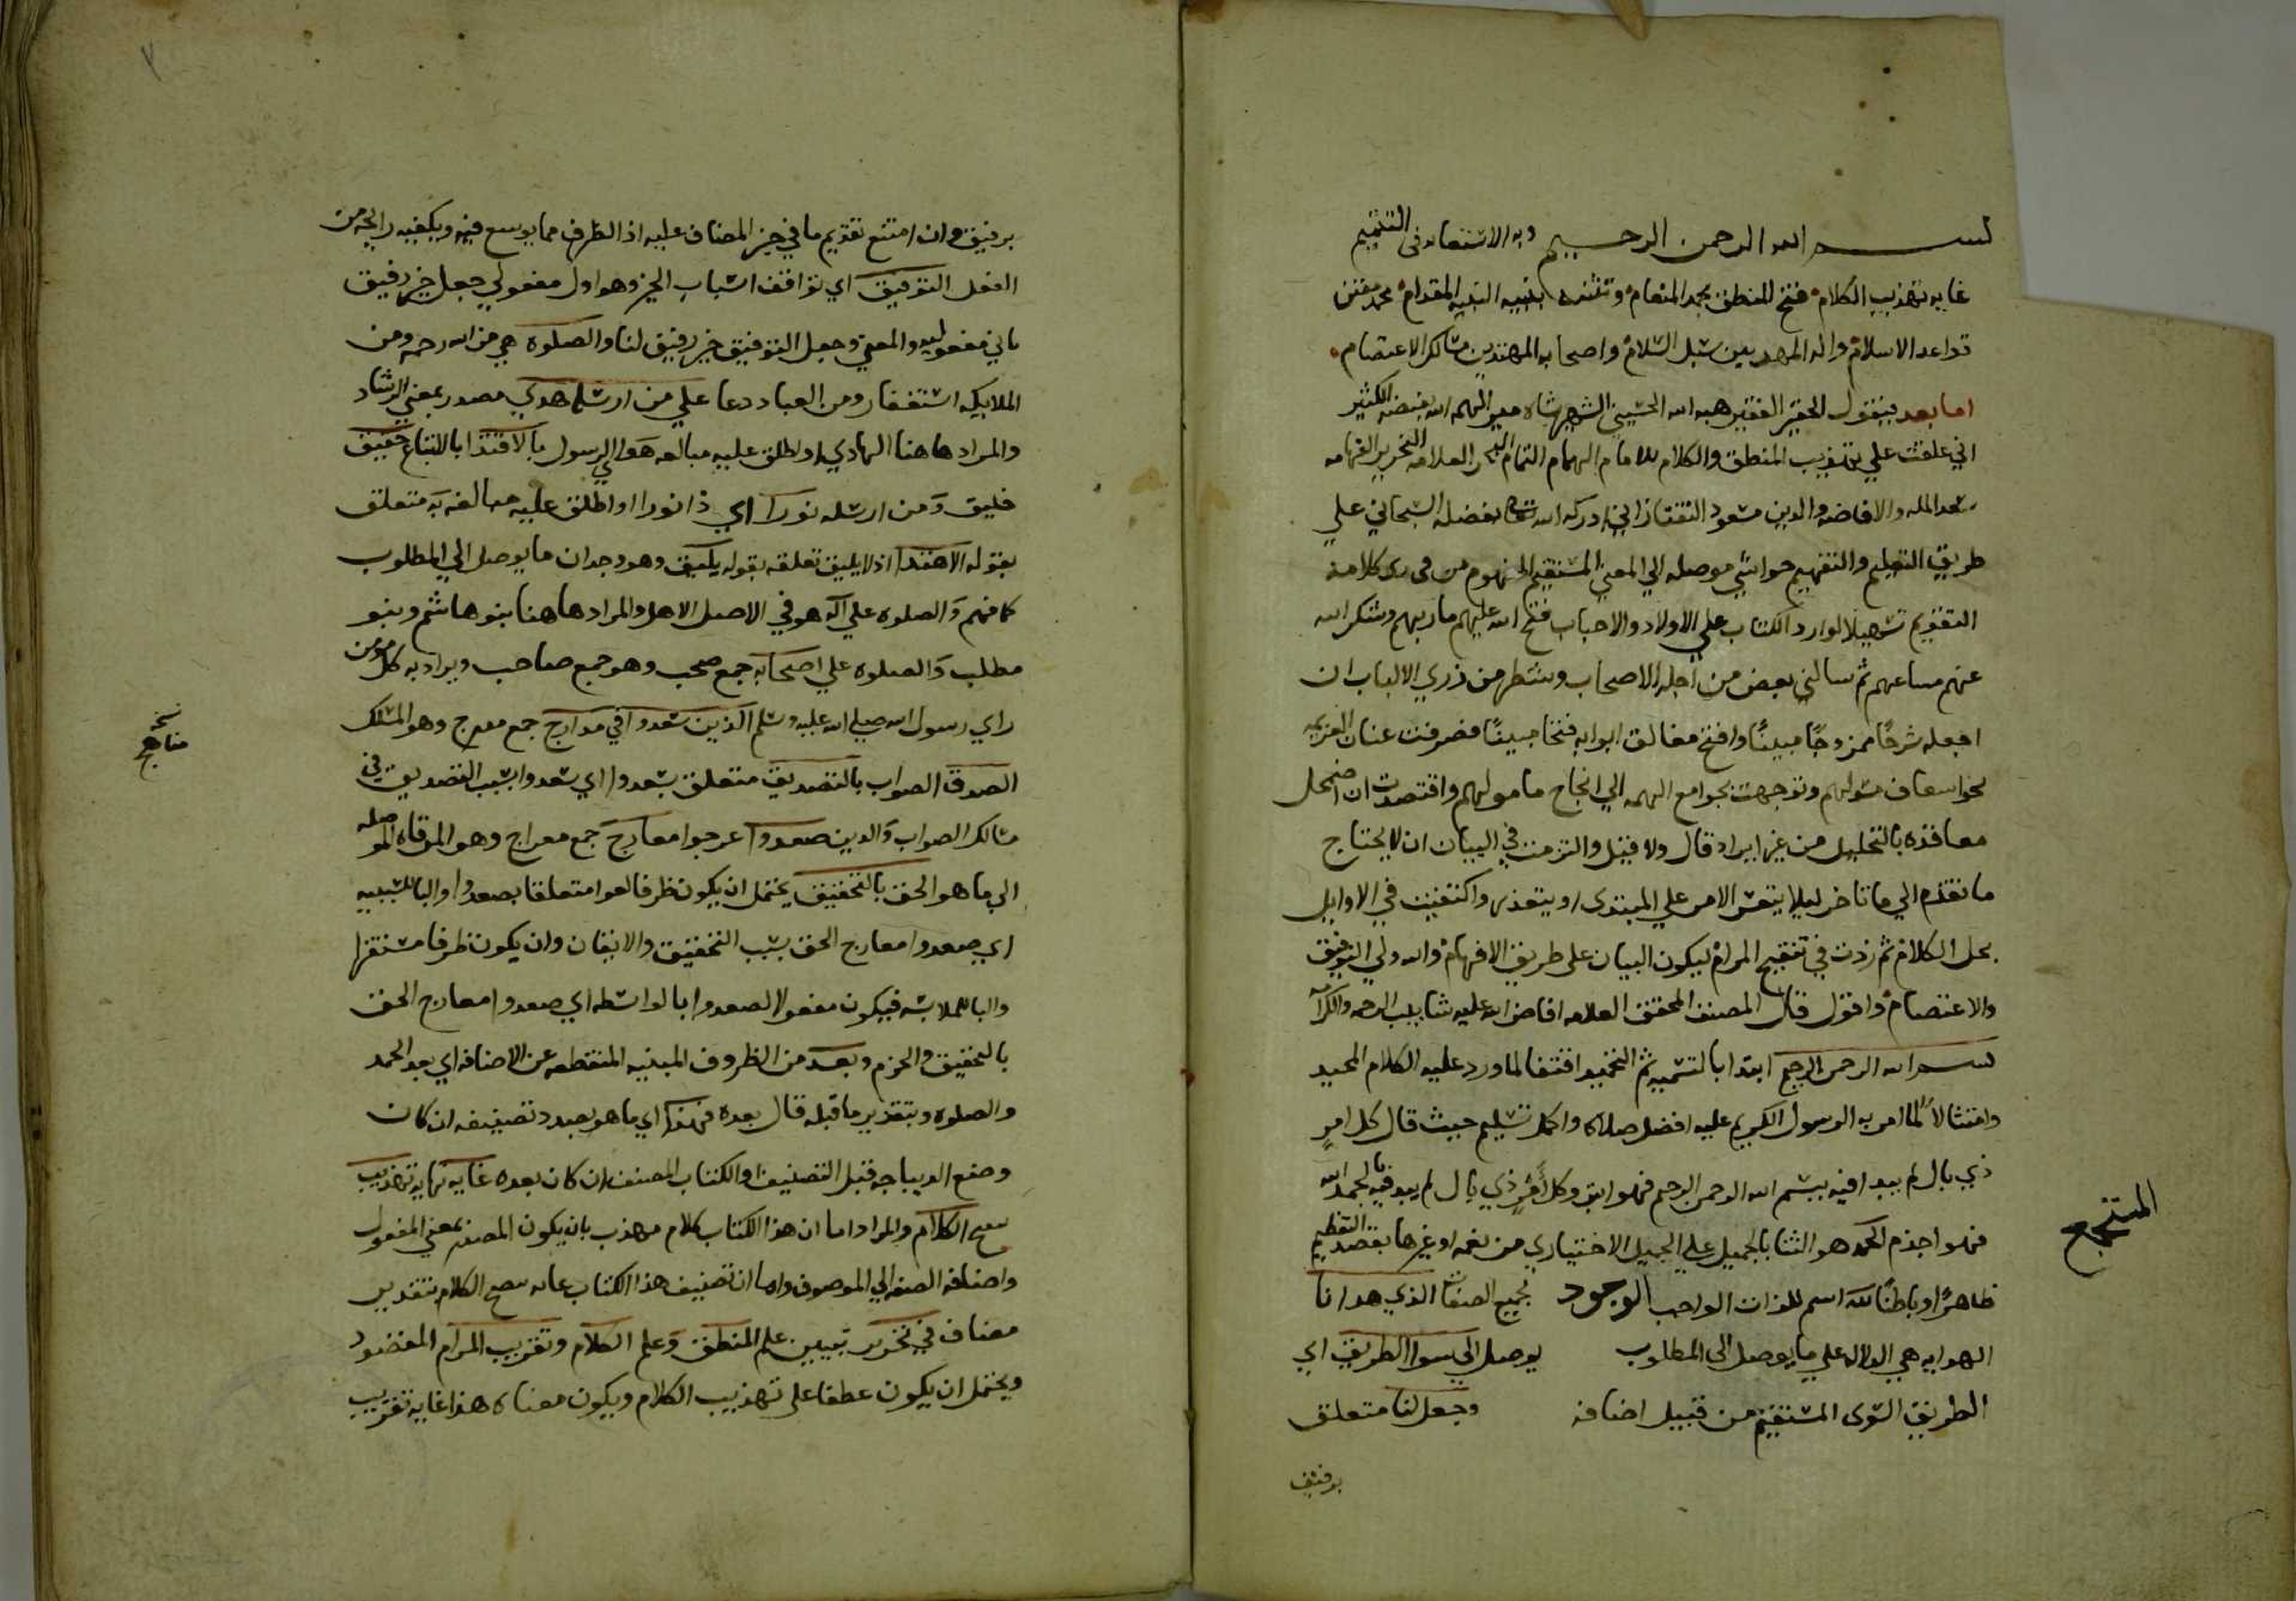 بسم الله الرحمن الرحيم وبه الاستعانه في التتميم
غايه تهذيب الكلام فتح المنطق بحمد المنعام وتثنيه بنبيه النبيه المقدام محمد مقنن
قواعد الاسلام واله المهديين سبل السلام واصحابه المهتدين مسالك الاعتصام
اما بعد فيقول الحقير الفقير هبه الله الحسيني الشهير شاه مير الهمه الله بفيضه الكثير
اني علقت علي تهذيب المنطق والكلام للامام الهمام القمقام البحر العلامه النحرير الفهامه
سعد المله والافاضه والدين مسعود التفتازاني ادركه الله بفضله السبحاني علي
طريق التعليم والتفهيم حواشي موصله الي المعني المستقيم المفهوم من كلامه
القويم تسهيلا لوارد الكتاب علي الاولاد والاحباب فتح الله عليهم ماربهم وشكر الله
عنهم مساعيهم ثم سالني بعض من اجله الاصحاب وشطر من ذوي الالباب ان
اجعله شرحًا ممزوجًا مبينًا وافتح مغالق ابوابه فتحا مبينًا فصرفت عنان العزيمه
نحو اسعاف مسولهم وتوجهت بجوامع الهمه الي انجاح مامولهم واقتصدت ان اضمحل
معاقده بالتحليل من غير ايراد قال ولا قيل والتزمت في البيان ان لا يحتاج
ما تقدم الي ما تاخر ليلا يتعسر الامر علي المبتدي او يتعذر واكتفيت في الاوايل
بحل الكلام ثم زدت في تنقيح المرام ليكون البيان على طريق الافهام والله ولي التوفيق
والاعتصام واقول قال المصنف المحقق العلامه افاض الله عليه شابيب الرحمه والكرامه
بسم الله الرحمن الرحيم ابتدا بالتسميه ثم التحميد اقتفا لما ورد عليه الكلام المجيد
وامتثالاً لما امر به الرسول الكريم عليه افضل صلاه واكمل تسليم حيث قال كل امرٍ
ذي بال لم يبدا فيه ببسم الله الرحمن الرحيم فهو ابتر وكل امرٍ ذي بال لم يبد فيه بالحمد لله
فهو اجذم الحمد هو الثنا بالجميل علي الجميل الاختياري من نعمه او غيرها بقصد التعظيم
ظاهرًا وباطنًا لله اسم للذات الواجب الوجود بجميع الصفات الذي هدانا
المستجمع
الهدايه هي الدلاله علي ما يوصل الي المطلوب يوصل الي سوا الطريق اي
الطريق السوي المستقيم من قبيل اضافه وجعل لنا متعلق
برفيق
برفيق وان امتنع تقديم ما في حيز المضاف عليه اذ الظرف مما يوسع فيه ويكفيه رايحه من
الفعل التوفيق اي توافق اسباب الخير وهو اول مفعولي جعل خير رفيق
ثاني مفعوليه والمعني وجعل التوفيق خير رفيق لنا والصلوه هي من الله رحمه ومن
الملايكه استغفار ومن العباد دعا علي من ارسله هدي مصدر بمعني الرشاد
والمراد هاهنا الهادي او اطلق عليه مبالغه هو اي الرسول بالاقتدا بالاتباع حقيق
خليق ومن ارسله نورا اي ذا نورا او اطلق عليه مبالغه به متعلق
بقوله الاهتدا اذ لا يليق تعلقه بقوله يليق وهو وجدان ما يوصل الي المطلوب
كما فهم والصلوه علي آله هو في الاصل الاهل والمراد هاهنا بنو هاشم وبنو
مطلب والصلوه علي اصحابه جمع صحب وهو جمع صاحب ويراد به كل مومن
راي رسول الله صلي الله عليه وسلم الذين سعدوا في مدارج جمع مدرج وهو المسلك
نسخه
مناهج
الصدق الصواب بالتصديق متعلق بسعدوا اي سعدوا بسبب التصديق في
مسالك الصواب والدين صعدوا عرجوا معارج جمع معراج وهو المرقاه الموصله
الي ما هو الحق بالتحقيق يحتمل ان يكون ظرفا لغوا متعلقا بصعدوا والبا للسببيه
اي صعدوا معارج الحق بسبب التحقيق والايقان وان يكون ظرفا مستقرا
والبا للملابسه فيكون مفعولا لصعدوا بالواسطه اي صعدوا معارج الحق
بالتحقيق والجزم وبعد من الظروف المبنيه المنقطعه عن الاضافه اي بعد الحمد
والصلوه وبتقدير ما قبله قال بعده فهذا اي ما هو بصدد تصنيفه ان كان
وضع الديباجه قبل التصنيف او الكتاب المصنف ان كان بعده غايه نهايه تهذيب
الكلام والمراد اما ان هذا الكتاب كلام مهذب بان يكون المصدر بمعني المفعول
واضافه الصفه الي الموصوف واما ان تصنيف هذا الكتاب غايه الكلام بتقدير
مضاف في تحرير تبيين علم المنطق وعلم الكلام وتقريب المرام المقصود
ويحتمل ان يكون عطفا على تهذيب الكلام ويكون معناه هذا غايه تقريب